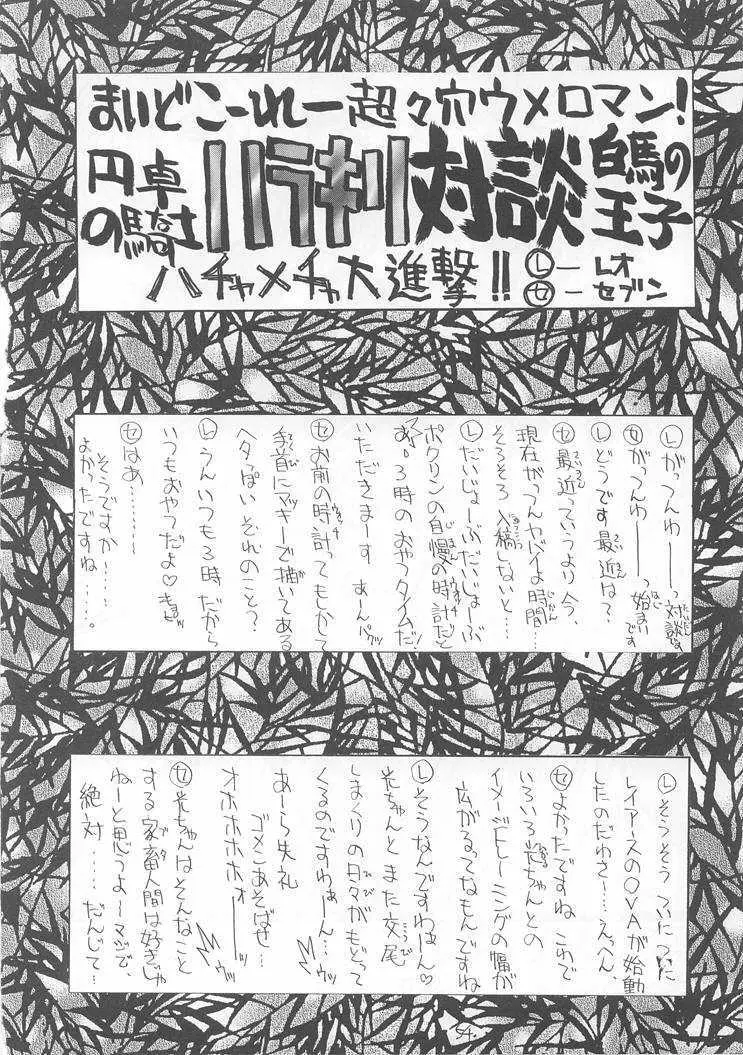 まいどこーれー超々穴ウメロマン!
円卓の騎士 ハラキリ対談 白馬の王子
ハチャメチャ大進撃!!
Ⓛ— レオ
㋝— セブン
Ⓛがっつんわ——っ対談は、
㋝がっつんわ——っ始まいです
Ⓛどうです最近は?
㋝最近っていうより今、
現在がつんヤバイよ時間…
そろそろ入稿しないと…
Ⓛだいじょーぶだいじょーぶ
ポクリンの自慢の時計だと
あ、3時のおやつタイムだ!
いただきまーす あーんパクッ
㋝お前の時計ってもしかして
手首にマッキーで描いてある
ヘタっぴい それのこと?
Ⓛうんいつも3時だから
いつもおやつだよ♡
㋝はあ…………
そうですか!……
よかったですね
……。
Ⓛそうそう ついに ついに
レイアースのOVAが始動
したのだわさ!…えっへん
㋝よかったですね これで
いろいろ光ちゃんとの
イメージトレーニングの幅が
広がるってなもんですね
Ⓛそうなんですわほーん♡
光ちゃんと また交尾
しまくりの日々がもどって
くるのですわぁーん…ウッ
あーら失礼
ゴメンあそばせ…
オホホホホォ———ウッ
㋝光ちゃんはそんなこと
する家畜人間は好きじゃ
ねーと思うよ〜マジで、
絶対……だんじて…
54.